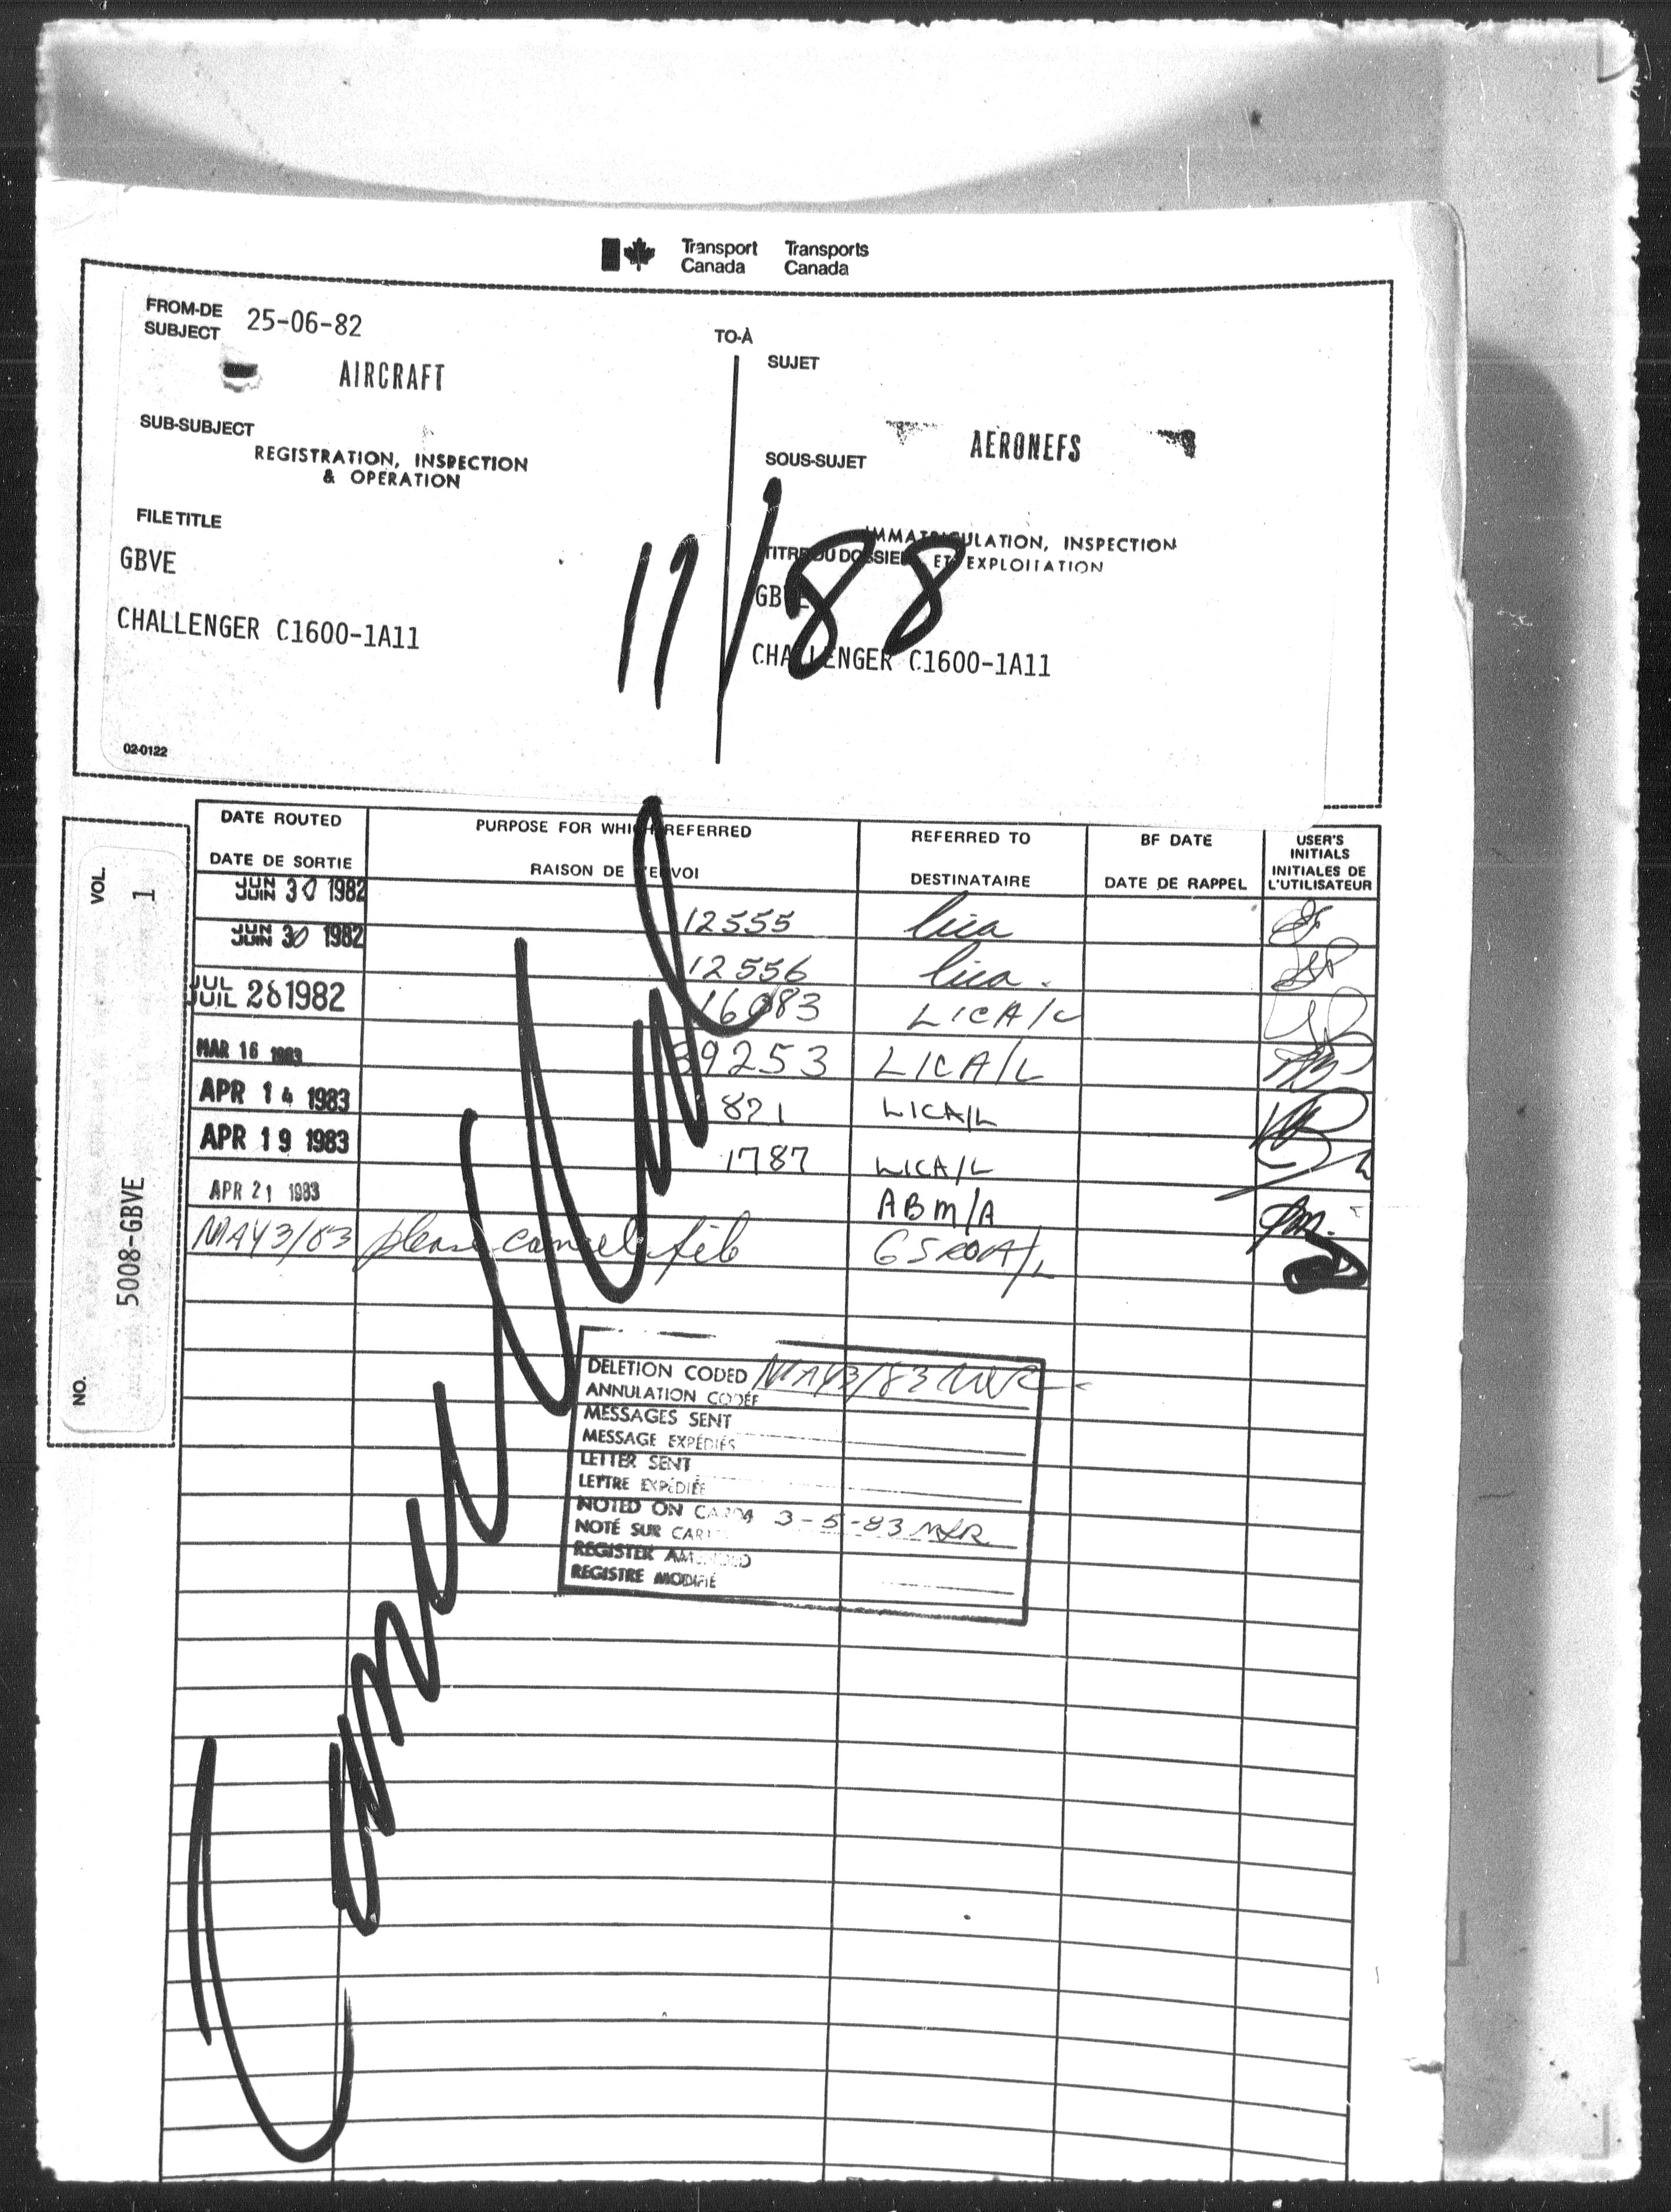 Transport Canada
Transports Canada
FROM-DE 25-06-82
TO-À
SUBJECT
AIRCRAFT
SUB-SUBJECT
REGISTRATION, INSPECTION
& OPERATION
FILE TITLE
GBVE
CHALLENGER C1600-1A11
02-0122
SUJET
AERONEFS
SOUS-SUJET
IMMATRICULATION, INSPECTION
ET EXPLOITATION
TITRE DU DOSSIER
GBVE
CHALLENGER C1600-1A11
11/88
VOL. 1
NO. 5008-GBVE
DATE ROUTED PURPOSE FOR WHICH REFERRED REFERRED TO BF DATE USER'S INITIALS
DATE DE SORTIE RAISON DE L'ENVOI DESTINATAIRE DATE DE RAPPEL INITIALES DE L'UTILISATEUR
JUN JUIN 30 1982 12555 lica
JUN JUIN 30 1982 12556 lica.
JUL JUIL 26 1982 16083 LICA/L
MAR 16 1983 39253 LICA/L
APR 14 1983 821 LICA/L
APR 19 1983 1787 LICA/L
APR 21 1983 ABM/A
MAY 3/83 please cancel file
Cancelled
DELETION CODED MAY 3/83
ANNULATION CODÉE
MESSAGES SENT
MESSAGE EXPÉDIÉS
LETTER SENT
LETTRE EXPÉDIÉE
NOTED ON CARDA 3-5-83
NOTÉ SUR
REGISTER AMENDED
REGISTRE MODIFIÉ